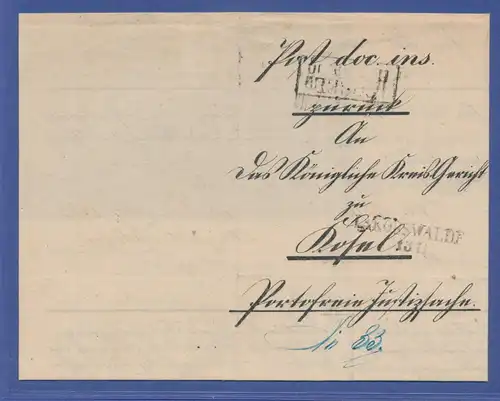 Post doc. ins.
zurück
An
Das Königliche Kreis Gericht
zu
Kosel
Portofreie Justizsache.
No 83.